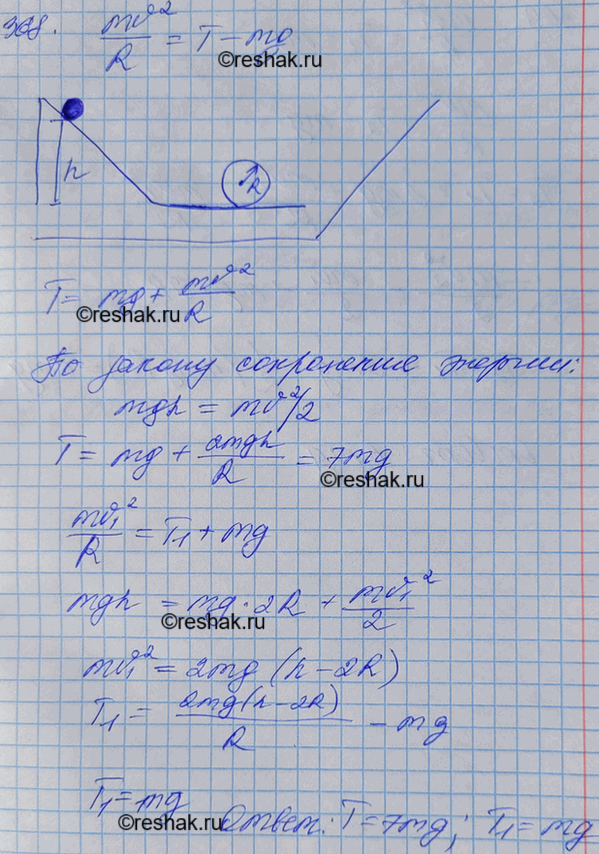 368. mv²/R = T - mg
©reshak.ru
h
R
T = mg + mv²/R
©reshak.ru
По закону сохранение энергии:
mgh = mv²/2
T = mg + 2mgh/R = 7mg
©reshak.ru
mv₁²/R = T₁ + mg
mgh = mg·2R + mv₁²/2
©reshak.ru
mv₁² = 2mg(h-2R)
T₁ = 2mg(h-2R)/R - mg
T₁ = mg
©reshak.ru
Ответ: T = 7mg; T₁ = mg